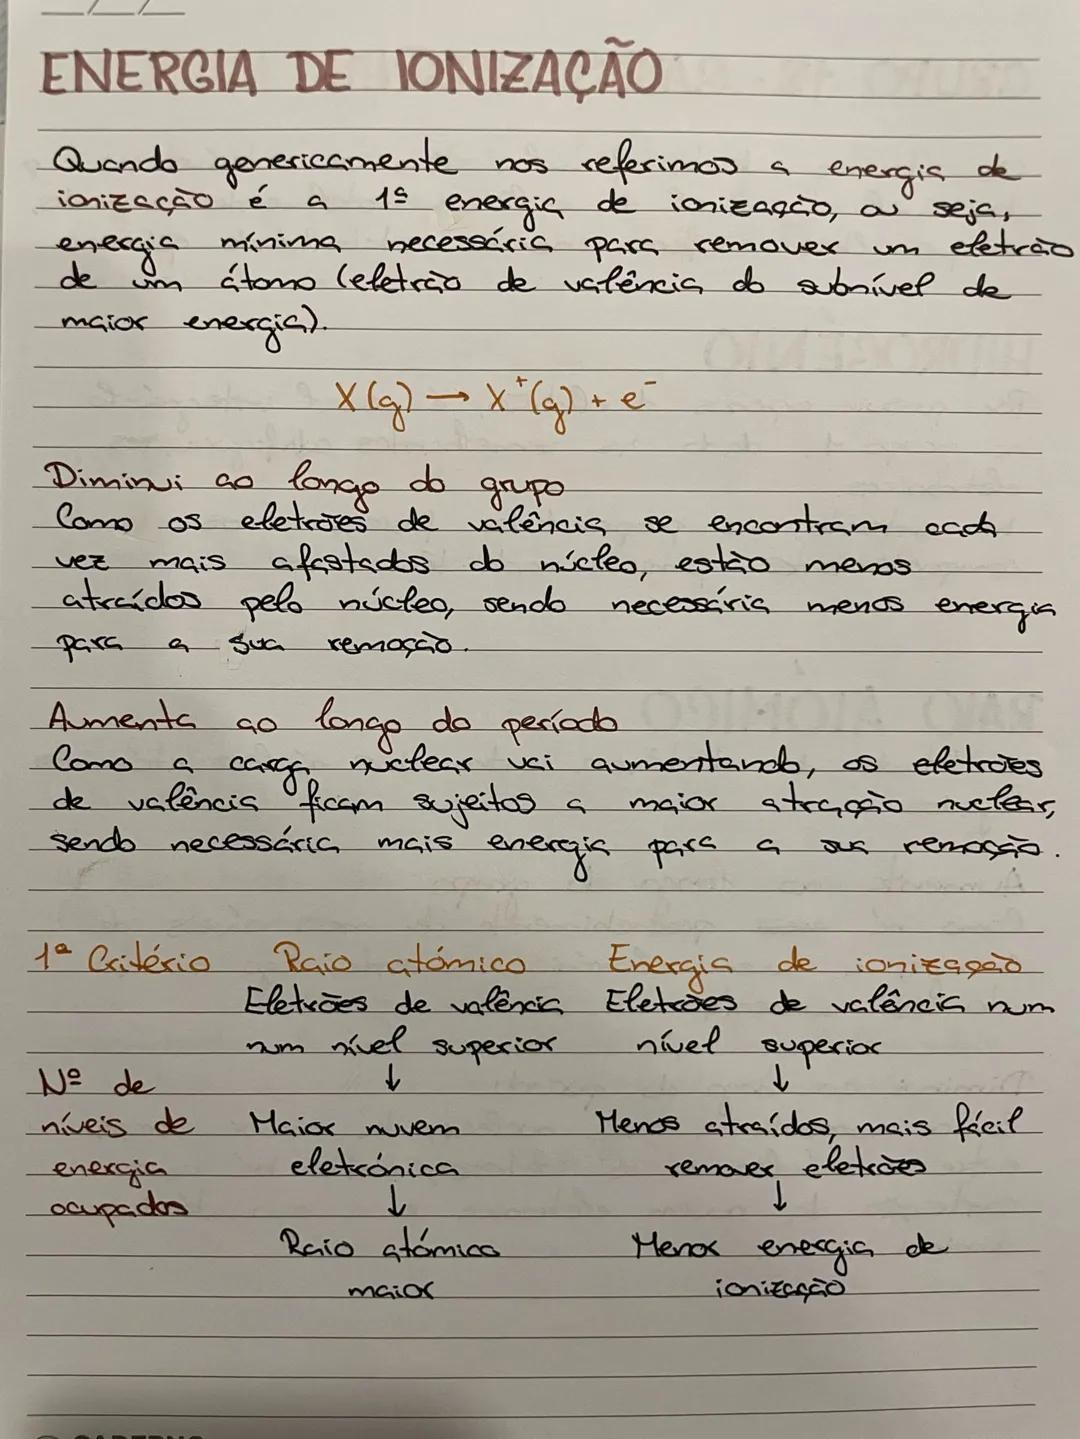 ENERGIA DE IONIZAÇÃO
Quando genericamente nos referimos a energia de
ionização é a 1ª energia de ionização, ou seja,
energia mínima necessária para remover um eletrão
de um átomo (eletrão de valência do subnível de
maior energia).
X(g) → X⁺(g) + e⁻
Diminui ao longo do grupo
Como os eletrões de valência se encontram cada
vez mais afastados do núcleo, estão menos
atraídos pelo núcleo, sendo necessária menos energia
para a sua remoção.
Aumenta ao longo do período
Como a carga nuclear vai aumentando, os eletrões
de valência ficam sujeitos a maior atração nuclear,
sendo necessária mais energia para a sua remoção.
1º Critério Raio atómico Energia de ionização
Eletrões de valência Eletrões de valência num
num nível superior nível superior
Nº de ↓ ↓
níveis de Maior nuvem Menos atraídos, mais fácil
energia eletrónica remover eletrões
ocupados ↓ ↓
Raio atómico Menor energia de
maior ionização